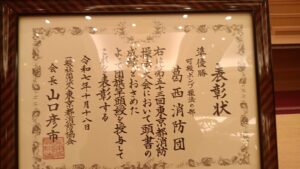 表彰状
準優勝
可搬ポンプ操法の部
葛西消防団
右は第五十三回東京都消防
操法大会において頭書の
成績をおさめた
よって団旗竿頭綬を授与して
これを表彰する
令和七年十月十八日
一般社団法人東京都消防協会
会長 山口彦市